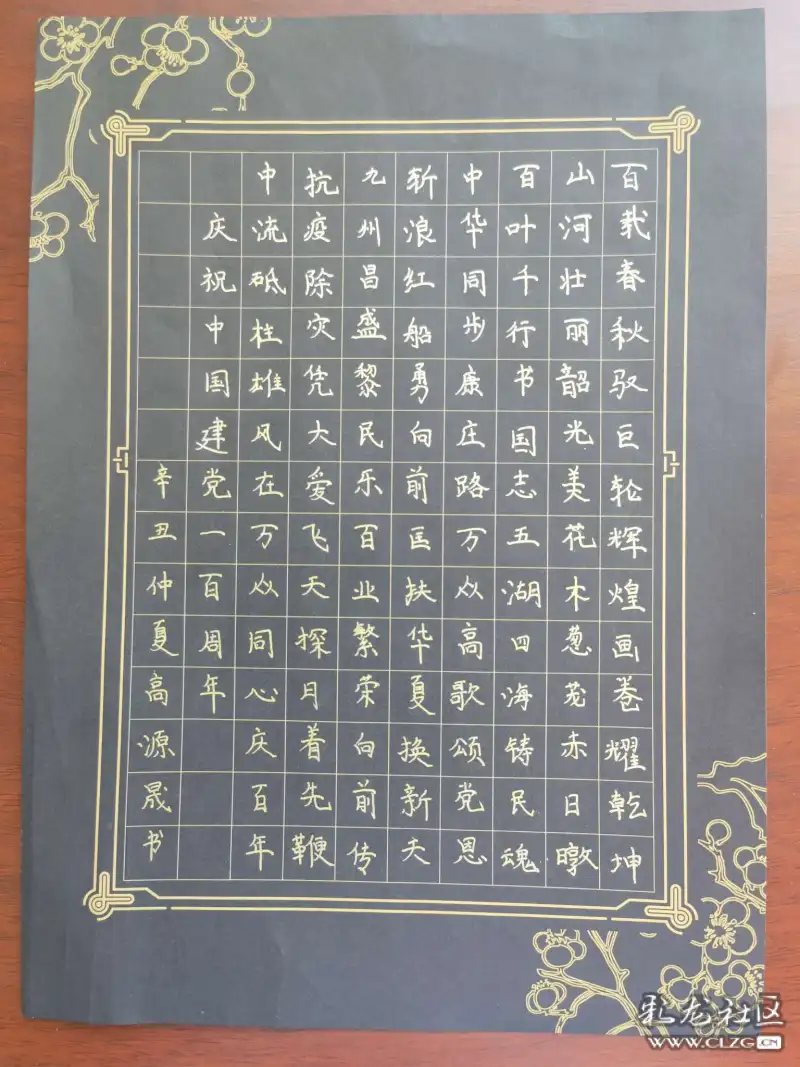 百载春秋驭巨轮辉煌画卷耀乾坤
山河壮丽韶光美花木葱茏赤日暾
百叶千行书国志五湖四海铸民魂
中华同步康庄路万众高歌颂党恩
斩浪红船勇向前匡扶华夏换新天
九州昌盛黎民乐百业繁荣向前传
抗疫除灾凭大爱飞天探月着先鞭
中流砥柱雄风在万众同心庆百年
庆祝中国建党一百周年
辛丑仲夏高源晟书
化龙社区
WWW.CLZG.CN